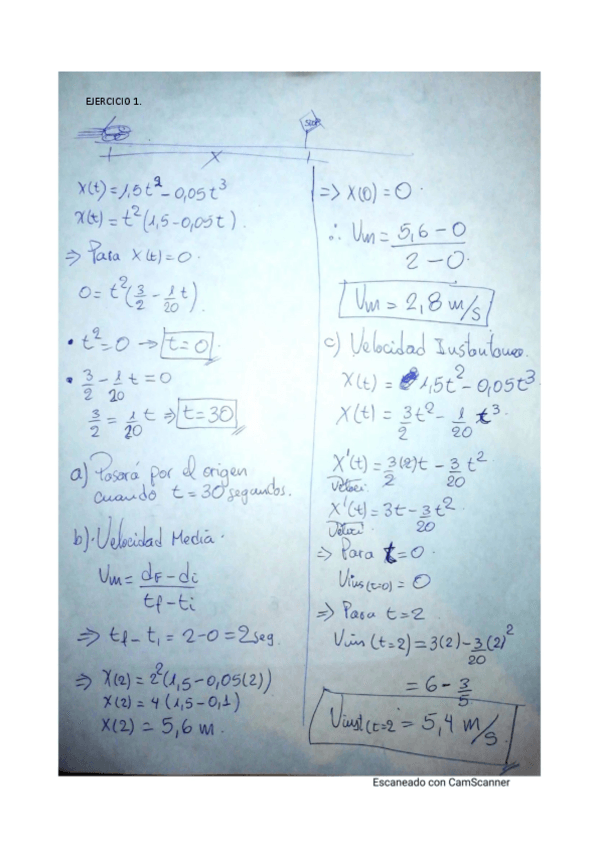 EJERCICIO 1.
STOP
x
X(t)=1,5t²-0,05t³
X(t)=t²(1,5-0,05t).
⇒ Para X(t)=0.
0=t²(3/2-1/20 t).
• t²=0 → t=0
• 3/2-1/20 t=0
3/2=1/20 t ⇒ t=30
a) Pasará por el origen
cuando t=30 segundos.
b) Velocidad Media.
Vm= (dF-di)/(tf-ti)
⇒ tf-ti=2-0=2seg.
⇒ X(2)=2²(1,5-0,05(2))
X(2)=4(1,5-0,1)
X(2)=5,6 m.
⇒ X(0)=0.
∴ Vm=(5,6-0)/(2-0)
Vm=2,8 m/s
c) Velocidad Instantanea.
X(t)=1,5t²-0,05t³
X(t)=3/2 t²-1/20 t³.
X'(t)=3/2(2)t-3/20 t²
Veloci.
X'(t)=3t-3/20 t²
Veloci.
⇒ Para t=0.
Vins(t=0)=0
⇒ Para t=2
Vins(t=2)=3(2)-3/20(2)²
=6-3/5
Vinst(t=2=5,4 m/s.
Escaneado con CamScanner